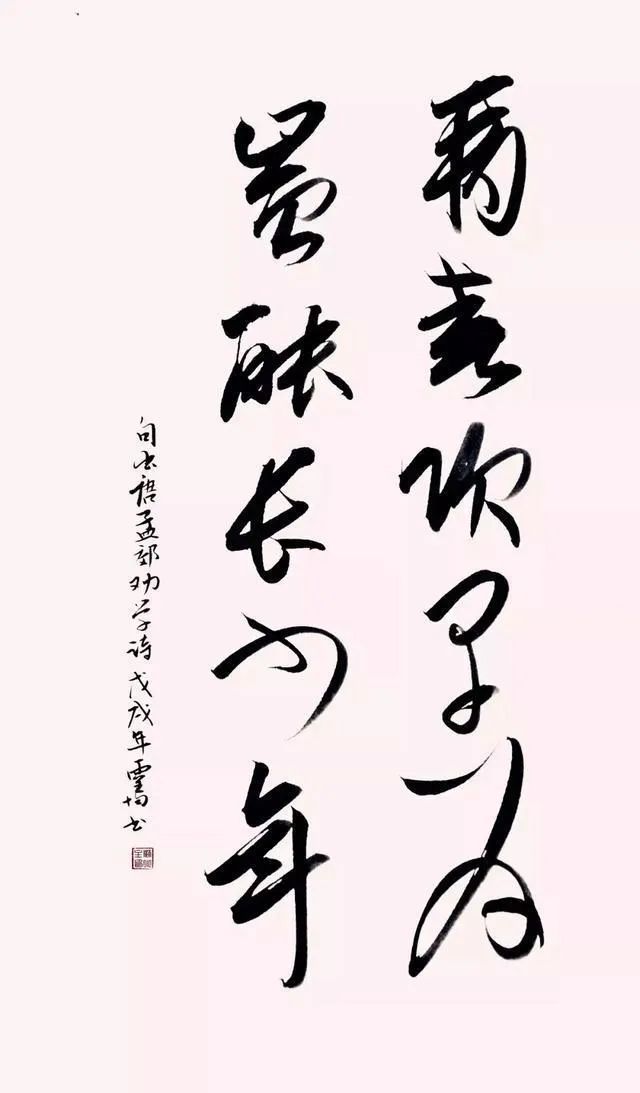 青春须早为
岂能长少年
句出语孟郊劝学诗戊戌年书